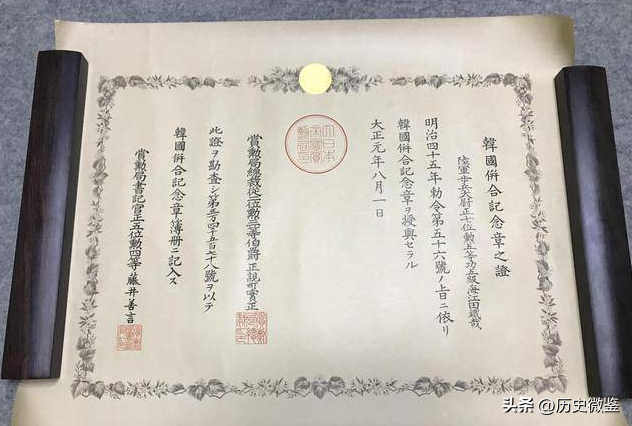 韓國併合記念章之證
陸軍歩兵大尉正七位勳五等功五級海江田鐵哉
明治四十五年勅令第五十六號ノ旨ニ依リ
韓國併合記念章ヲ授與セラル
大正元年八月一日
賞勳局總裁從二位勳二等伯爵正親町實正
此證ヲ勘査シ第三万四千五百七十八號ヲ以テ
韓國併合記念章簿册ニ記入ス
賞勳局書記官正五位勳四等藤井善言
头条 @历史微鉴